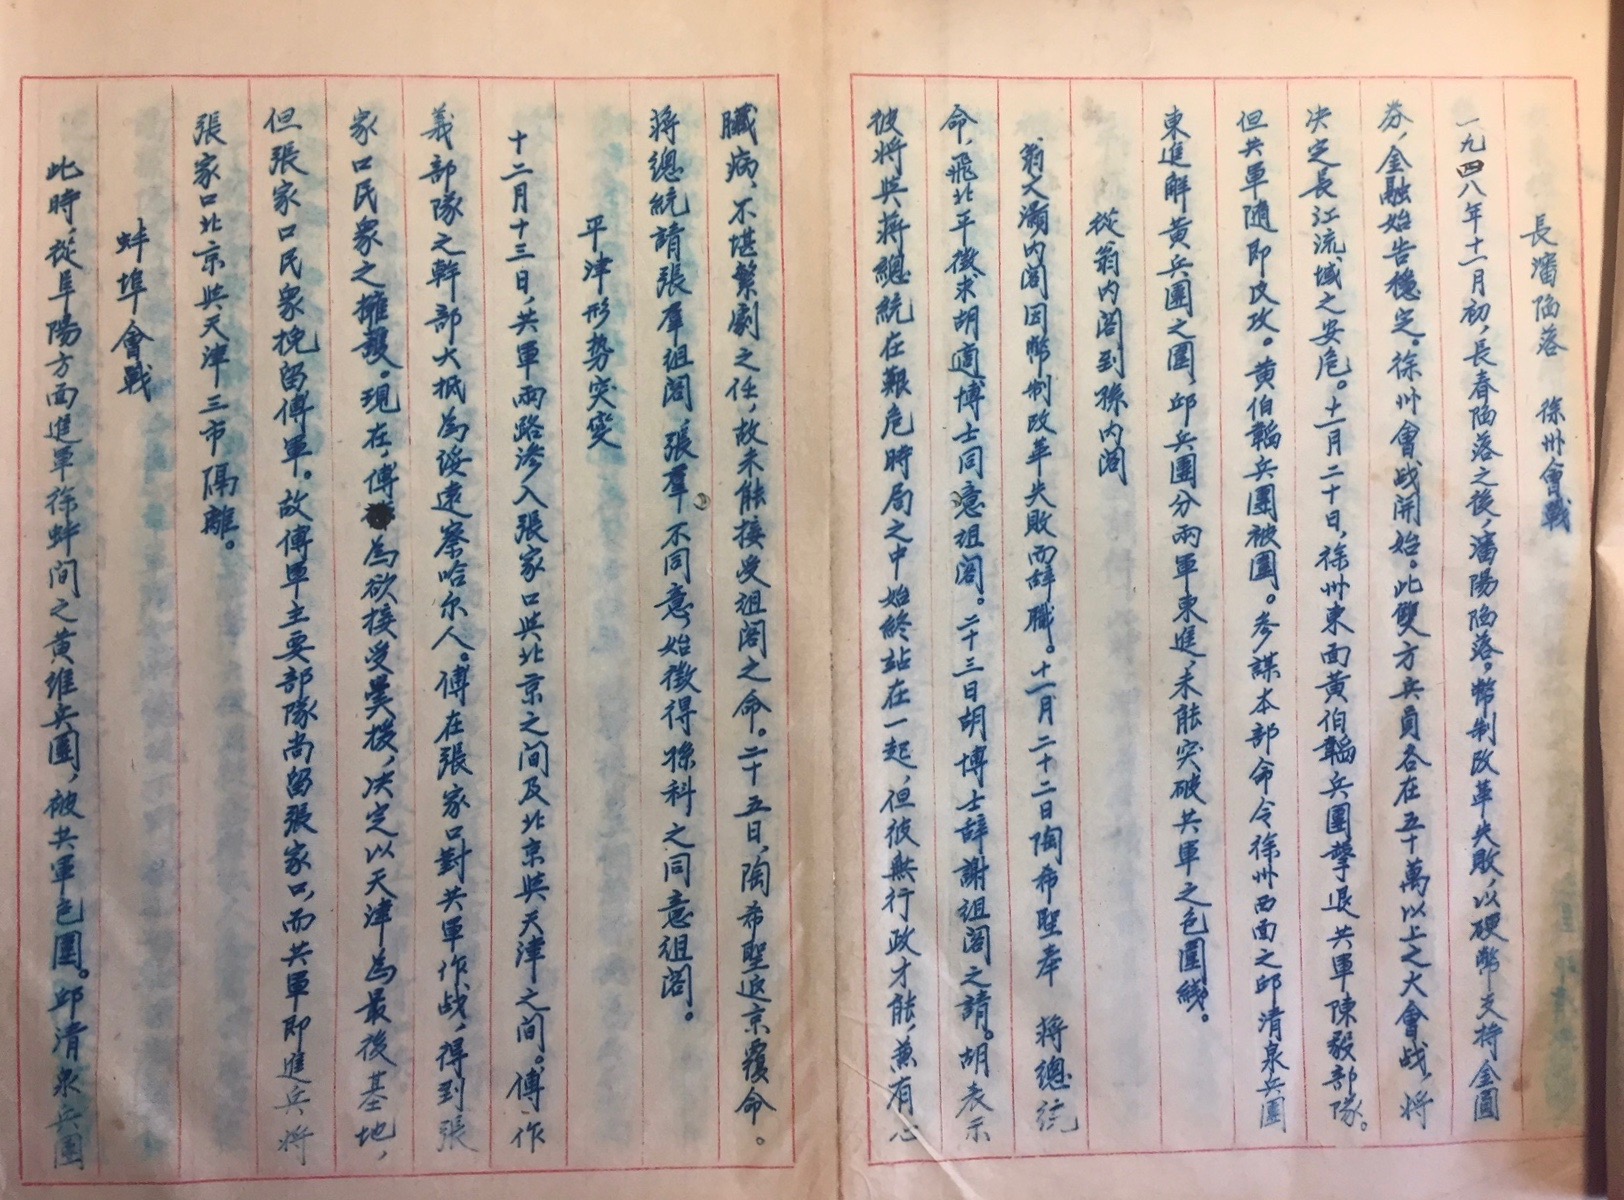 長瀋陷落　徐州會戰
一九四八年十一月初，長春陷落之後，瀋陽陷落。幣制改革失敗，以硬幣支持金圓
券，金融始告穩定。徐州會战開始。此雙方兵員各在五十萬以上之大會战，将
决定長江流域之安危。十一月二十日，徐州東面黃伯韜兵團擊退共軍陳毅部隊。
但共軍隨即反攻。黃伯韜兵團被圍。參謀本部命令徐州西面之邱清泉兵團
東進解黃兵團之圍，邱兵團分兩軍東進，未能突破共軍之包圍綫。
從翁内阁到孫内阁
翁文灝内阁因幣制改革失敗而辞職。十一月二十二日陶希聖奉　蔣總統
命，飛北平徵求胡適博士同意组阁。二十三日胡博士辞謝组阁之請。胡表示
彼将與蔣總統在艱危時局之中始終站在一起，但彼無行政才能，兼有心
臟病，不堪繁劇之任，故未能接受组阁之命。二十五日，陶希聖返京覆命。
蔣總統請張羣组阁，張羣不同意，始徵得孫科之同意组阁。
平津形势突変
十二月十三日，共軍兩路渗入張家口與北京之间及北京與天津之间。傅作
義部隊之幹部大抵為綏遠察哈尔人。傅在張家口對共軍作战，得到張
家口民衆之擁護。現在，傅為欲接受美援，决定以天津為最後基地，
但張家口民衆挽留傅軍。故傅軍主要部隊尚留張家口，而共軍即進兵将
張家口北京與天津三市隔離。
蚌埠會戰
此時，從阜陽方面進軍徐蚌间之黃維兵團，被共軍包圍。邱清泉兵團